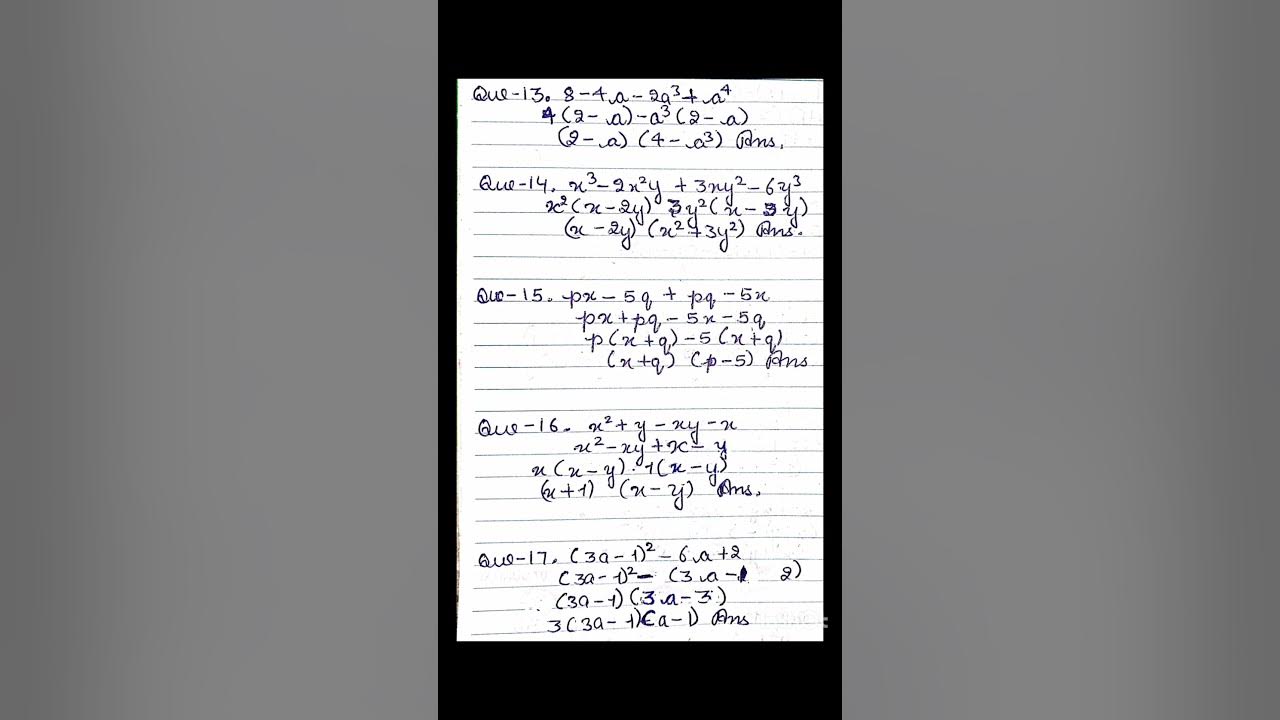 Que-13. 8-4a-2a³+a⁴
4(2-a)-a³(2-a)
(2-a) (4-a³) Ans.
Que-14. x³-2x²y+3xy²-6y³
x²(x-2y) 3y²(x-3y)
(x-2y) (x²+3y²) Ans.
Que-15. px-5q+pq-5x
px+pq-5x-5q
p(x+q)-5(x+q)
(x+q) (p-5) Ans
Que-16. x²+y-xy-x
x²-xy+x-y
x(x-y).1(x-y)
(x+1) (x-y) Ans.
Que-17. (3a-1)²-6a+2
(3a-1)²-(3a-1 2)
(3a-1)(3a-3)
3(3a-1)(a-1) Ans